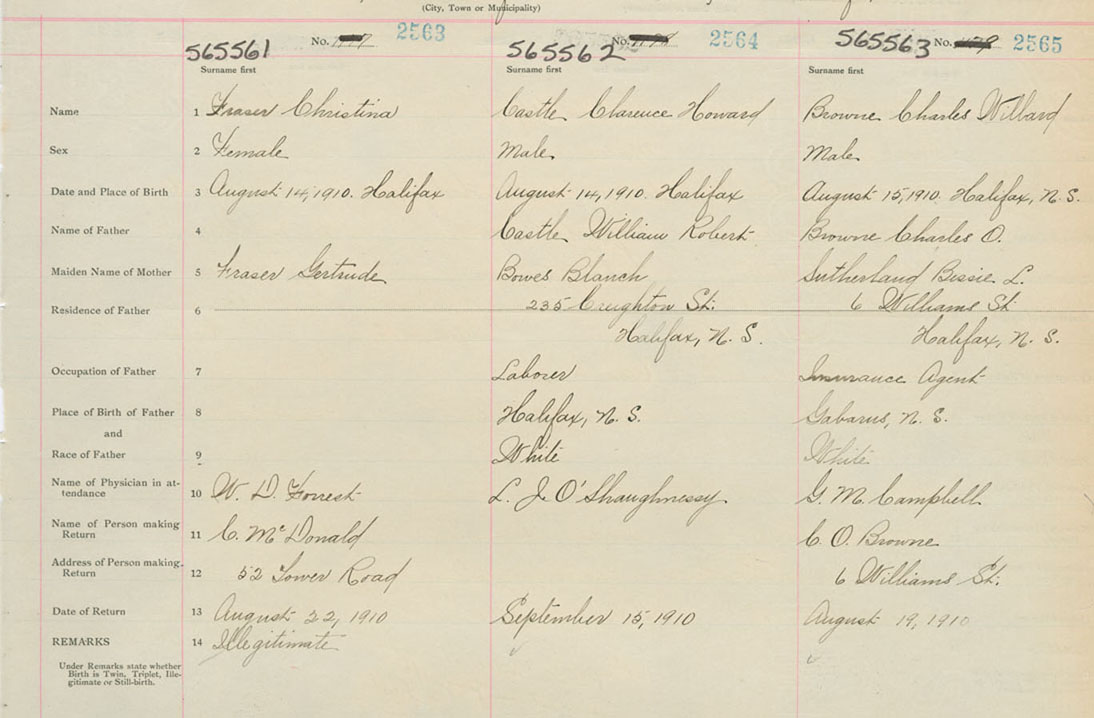 (City, Town or Municipality)
565561 No. 2563 565562 No. 2564 565563 No. 2565
Surname first Surname first Surname first
Name 1 Fraser Christina Castle Clarence Howard Browne Charles Willard
Sex 2 Female Male Male
Date and Place of Birth 3 August 14, 1910. Halifax August 14, 1910. Halifax August 15, 1910. Halifax, N. S.
Name of Father 4 Castle William Robert Browne Charles O.
Maiden Name of Mother 5 Fraser Gertrude Bowes Blanch Sutherland Bessie L.
Residence of Father 6 235 Creighton St. 6 Williams St
Halifax, N. S. Halifax, N. S.
Occupation of Father 7 Laborer Insurance Agent
Place of Birth of Father 8 Halifax, N. S. Gabarus, N. S.
and
Race of Father 9 White White
Name of Physician in at-
tendance 10 W. D. Forrest L. J. O'Shaughnessy G. M. Campbell
Name of Person making
Return 11 C. McDonald C. O. Browne
Address of Person making
Return 12 52 Tower Road 6 Williams St.
Date of Return 13 August 22, 1910 September 15, 1910 August 19, 1910
REMARKS 14 Illegitimate
Under Remarks state whether
Birth is Twin, Triplet, Ille-
gitimate or Still-birth.